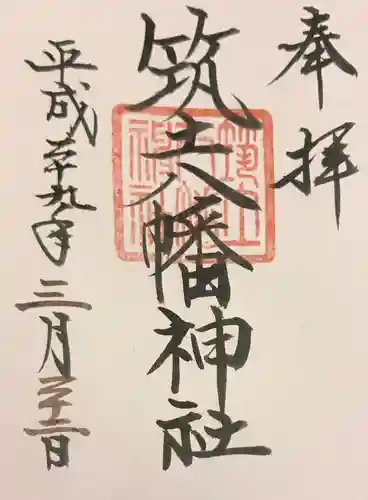 奉拝
筑土八幡神社
平成二十九年三月二十二日